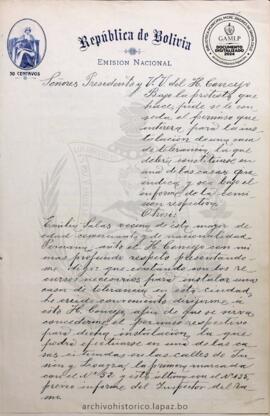 República de Bolivia
EMISION NACIONAL
50 CENTAVOS
GAMLP
DOCUMENTO
DIGITALIZADO
2024
Señores Presidente y V.V. del H. Concejo
Bajo la protesta que
hace, pide se le con-
ceda el permiso que
para la ins-
talacion de una casa
de tolerancia, la que
debrá constituirse en
una de las casas que
indica, y sea bajo el
informe de la Comi-
sion respectiva.
Otrosi:
Salas vecina de esta, mujer de
edad, y de nacionalidad
Peruana, ante el H. Concejo con mi
mas profundo respeto presentando-
me digo: que contando con los re-
cursos necesarios para instalar una
casa de tolerancia en esta ciudad,
he creido conveniente dirigirme á
este H. Concejo, afin de que se sirva
concederme el permiso respectivo
para dicha instalacion, la que
podrá efectuarse en una de las ca-
sas situadas en las calles de Ju-
nin y la primera marcada
con el Nº y esta última con el Nº
previo informe del Inspector del ra-
mo.
archivohistorico.lapaz.bo